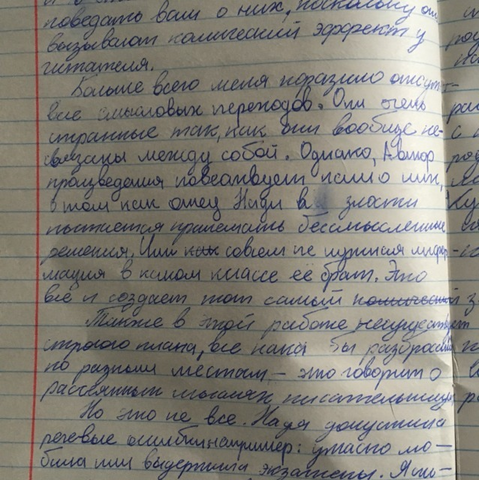 поведать вам о них, поскольку они
вызывают комический эффект у
читателя.
Больше всего меня поразило отсутст-
вие смысловых переходов. Они очень
странные так, как они вообще не-
связаны между собой. Однако, Автор
произведения повествует нам о них,
о том как отец Нади в злости
пытается принимать бессмысленные
решения. Или как совсем не нужная инфор-
мация в каком классе её брат. Это
всё и создает тот самый комический
Также в этой работе несуществует
строгого плана, все как бы разбросано
по разным местам – это говорит о
рассеянных мыслях писательницы
Но это не все. Надя допустила
речевые ошибки например: ужасно лю-
била или выдержила экзамены.